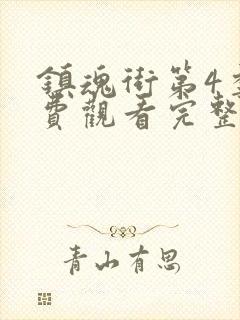 鎮魂街第4
費觀看完整
青山有思